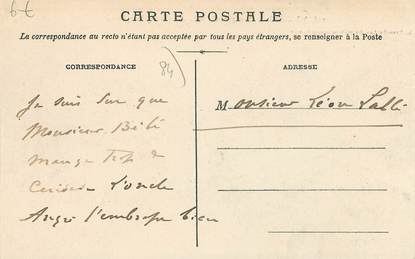 6€
CARTE POSTALE
La correspondance au recto n'étant pas acceptée par tous les pays étrangers, se renseigner à la Poste
CORRESPONDANCE
84
ADRESSE
Je suis sur que
Monsieur Bébé
mange trop de
Cerises L'oncle
l'embrasse bien
Monsieur Léon